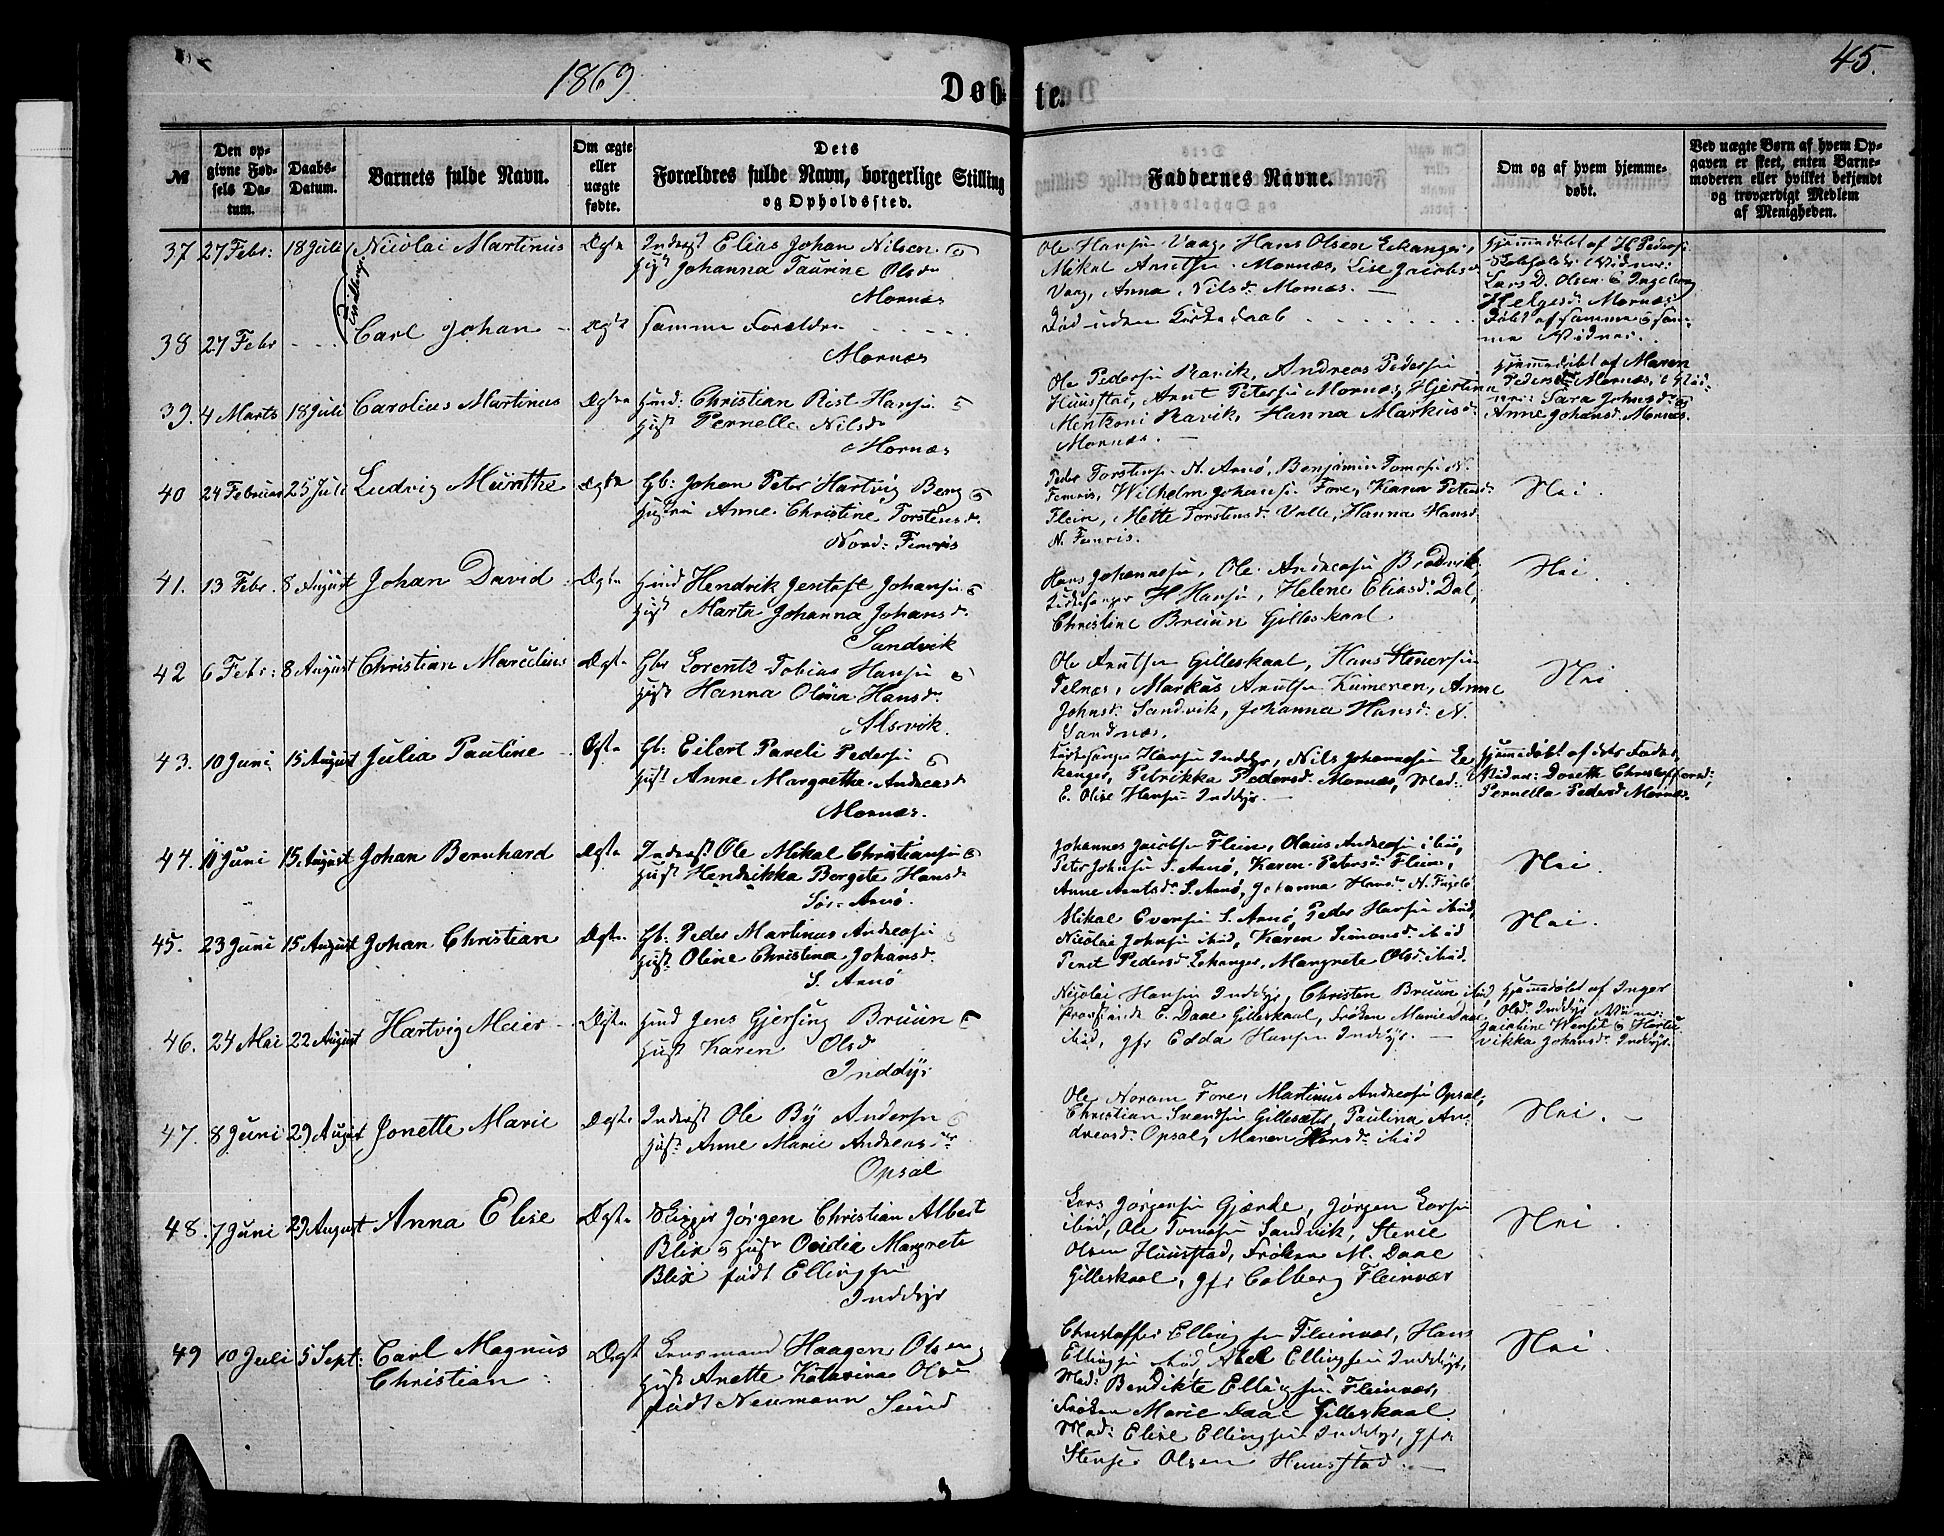 45.
1869.
Døbte.
№
Den opgivne Fødsels Datum.
Daabs-Datum.
Barnets fulde Navn.
Om ægte eller uægte fødte.
Dets Forældres fulde Navn, borgerlige Stilling og Opholdssted.
Faddernes Navne.
Om og af hvem hjemmedøbt.
Ved uægte Børn af hvem Opgaven er skeet, enten Barnemoderen eller hvilket bekjendt og troværdigt Medlem af Menigheden.
37 27 Febr: 18 Juli Nicolai Martinus Ægte
Elias Johan Nilsen
Johanna Taurine Olsd
Mornæs
Ole Hansen Vaag, Hans Olsen Eekanger,
Mikal Arntsen Mornæs, Lise Jacobsd
Vaag, Anna Nilsd. Mornæs.
Hjemmedøbt af H. Peders:
Lars D. Olsen & Ingeborg
Helgesd. Mornæs
Tvillinger
38 27 Febr Carl Johan Ægte Samme Forældre
Mornæs
Død uden Kirkedaab
Døbt af samme & samme Vidner.
39. 4 Marts 18 Juli Carolius Martinus Ægte
Christian Rist Hansen
Hust Pernelle Nilsd
Mornæs
Ole Pedersen Ravik, Andreas Pedersen
Huustad, Arnt Petersen Mornæs, Hjertina
Ravik, Hanna Markusd:
Mornæs.
Hjemmedøbt af Maren
Pedersd. Mornæs,
Sara Johnsd. og
Anne Johansd. Mornæs.
40 24 Februar 25 Juli Ludvig Munthe Ægte
Gb: Johan Peter Hartvig Berg
Hustru Anne Christine Torstensd.
Nord: Femris
Peder Torstensen N. Arnø, Benjamin Tomasen N.
Femris, Wilhelm Johansen Fore, Karen Petersd.
Flein, Mette Torstensd. Valle, Hanna Hansd.
N. Femris.
Nei.
41. 13 Febr. 8 August Johan David Ægte
Hendrik Jentoft Johansen
Hust Marta Johanna Johansd.
Sandvik
Hans Johannesen, Ole Andreasen Brødvik,
Kirkesanger H. Hansen, Helene Eliasd. Dal,
Christine Bruun Gilleskaal
Nei.
42 6 Febr: 8 August Christian Marelius Ægte
Gbr Lorentz Tobias Hansen
Hust Hanna Olava Hansd.
Alsvik.
Ole Arntsen Gilleskaal, Hans Stenersen
Telnæs, Markus Arntsen Kumeren, Anne
Johnsd. Sandvik, Johanna Hansd. N.
Sandnæs.
Nei
43. 10 Juni 15 August Julia Pauline Ægte
Gb: Eilert Pareli Pedersen
Hust Anne Margrethe Andreasd
Mornæs.
Kirkesanger Hansen Inddyr, Nils Johannesen Eekanger,
Petrikka Pedersd. Mornæs, Mad:
E. Olise Hansen Inddyr.
Hjemmedøbt af dets Fader,
Vidner: Dorethe Christoffersd.,
Pernella Pedersd. Mornæs.
44. 11 Juni 15 August Johan Bernhard Ægte
Inderst Ole Mikal Christiansen
Hust Hendrikka Bergete Hansd.
Sør-Arnø.
Johannes Jacobsen Flein, Olaus Andreasen ibid,
Peter Johnsen S. Arnø, Karen Petersd. Flein,
Anne Arntsd. S. Arnø, Johanna Hansd. N. Fugelø
Nei.
45. 23 Juni 15 August Johan Christian Ægte.
Gb: Peder Martinus Andreasen
Hust: Oline Christina Johansd.
S. Arnø
Mikal Eversen S. Arnø, Peder Hansen ibid,
Nicolai Johnsen ibid, Karen Simonsd. ibid
Pedersd. Eekanger, Margrete Olsd. ibid.
Nei.
46. 24 Mai 22 August Hartvig Meier Ægte
Jens Gjersing Bruun
Hust Karen Olsd
Inddyr
Nicolai Hansen Inddyr, Christen Bruun, ibid,
Provstinde E. Daae Gilleskaal, Frøken Marie Daae
ibid, Jfr Edda Hansen Inddyr.
Hjemmedøbt af Inger
Olsd. Inddyr
Jacobine Wensel & Hartvikka
Johansd. Inddyr.
47. 8 Juni 29 August Jonette Marie Ægte
Inderst Ole By Andersen
Hust: Anne Marie Andreas
Opsal
Ole Norum Fore, Martinus Andreasen Opsal,
Christian Svendsen Gillesæter, Paulina Andreasd.
Opsal, Maren Hansd. ibid
Nei.
48. 7 Juni 29 August Anna Elise Ægte
Skipper Jørgen Christian Albert
Blix & Hust Ovidia Margrete
Blix født Ellingsen
Inddyr
Lars Jørgensen Gjærde, Jørgen Larsen
ibid, Ole Tomasen Sandvik,
Olsen Huustad, Frøken M. Daae
Gilleskaal, Jfr Colberg Fleinvær
Nei.
49 10 Juli 5 Sept: Carl Magnus Ægte
Christian
Lensmand Haagen Olsen
Hust Anette Katarina Olsen
født Neumann Sund
Christoffer Ellingsen Fleinvær, Hans
Ellingsen ibid, Abel Ellingsen Inddyr,
Mad: Bendikte Ellingsen Fleinvær,
Frøken Marie Daae Gilleskaal.
Mad: Elise Ellingsen Inddyr, Jfr:
Olsen Huustad.
Nei.